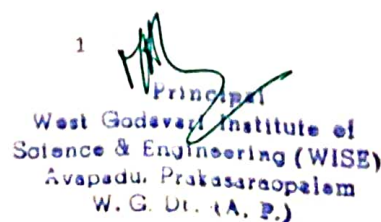 1
Principal
West Godavari Institute of
Science & Engineering (WISE)
Avapadu, Prakasaraopalem
W. G. Dt. (A. P.)